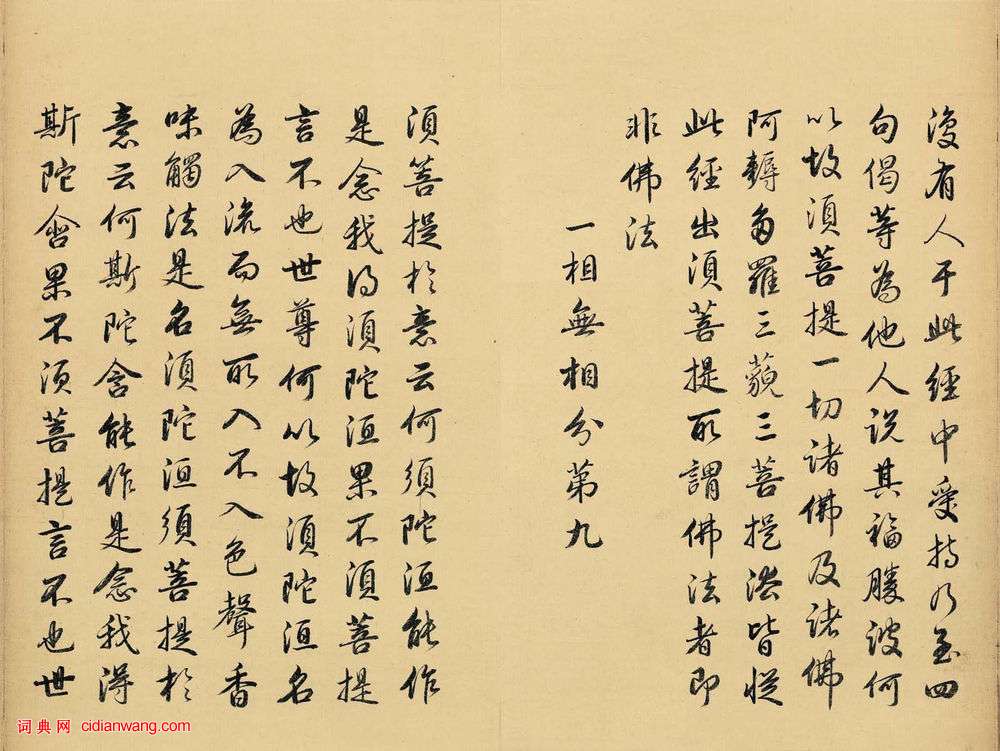 復有人于此經中受持乃至四
句偈等為他人說其福勝彼何
以故須菩提一切諸佛及諸佛
阿耨多羅三藐三菩提法皆從
此經出須菩提所謂佛法者即
非佛法
一相無相分第九
須菩提於意云何須陀洹能作
是念我得須陀洹果不須菩提
言不也世尊何以故須陀洹名
為入流而無所入不入色聲香
味觸法是名須陀洹須菩提於
意云何斯陀含能作是念我得
斯陀含果不須菩提言不也世
词典网 cidianwang.com